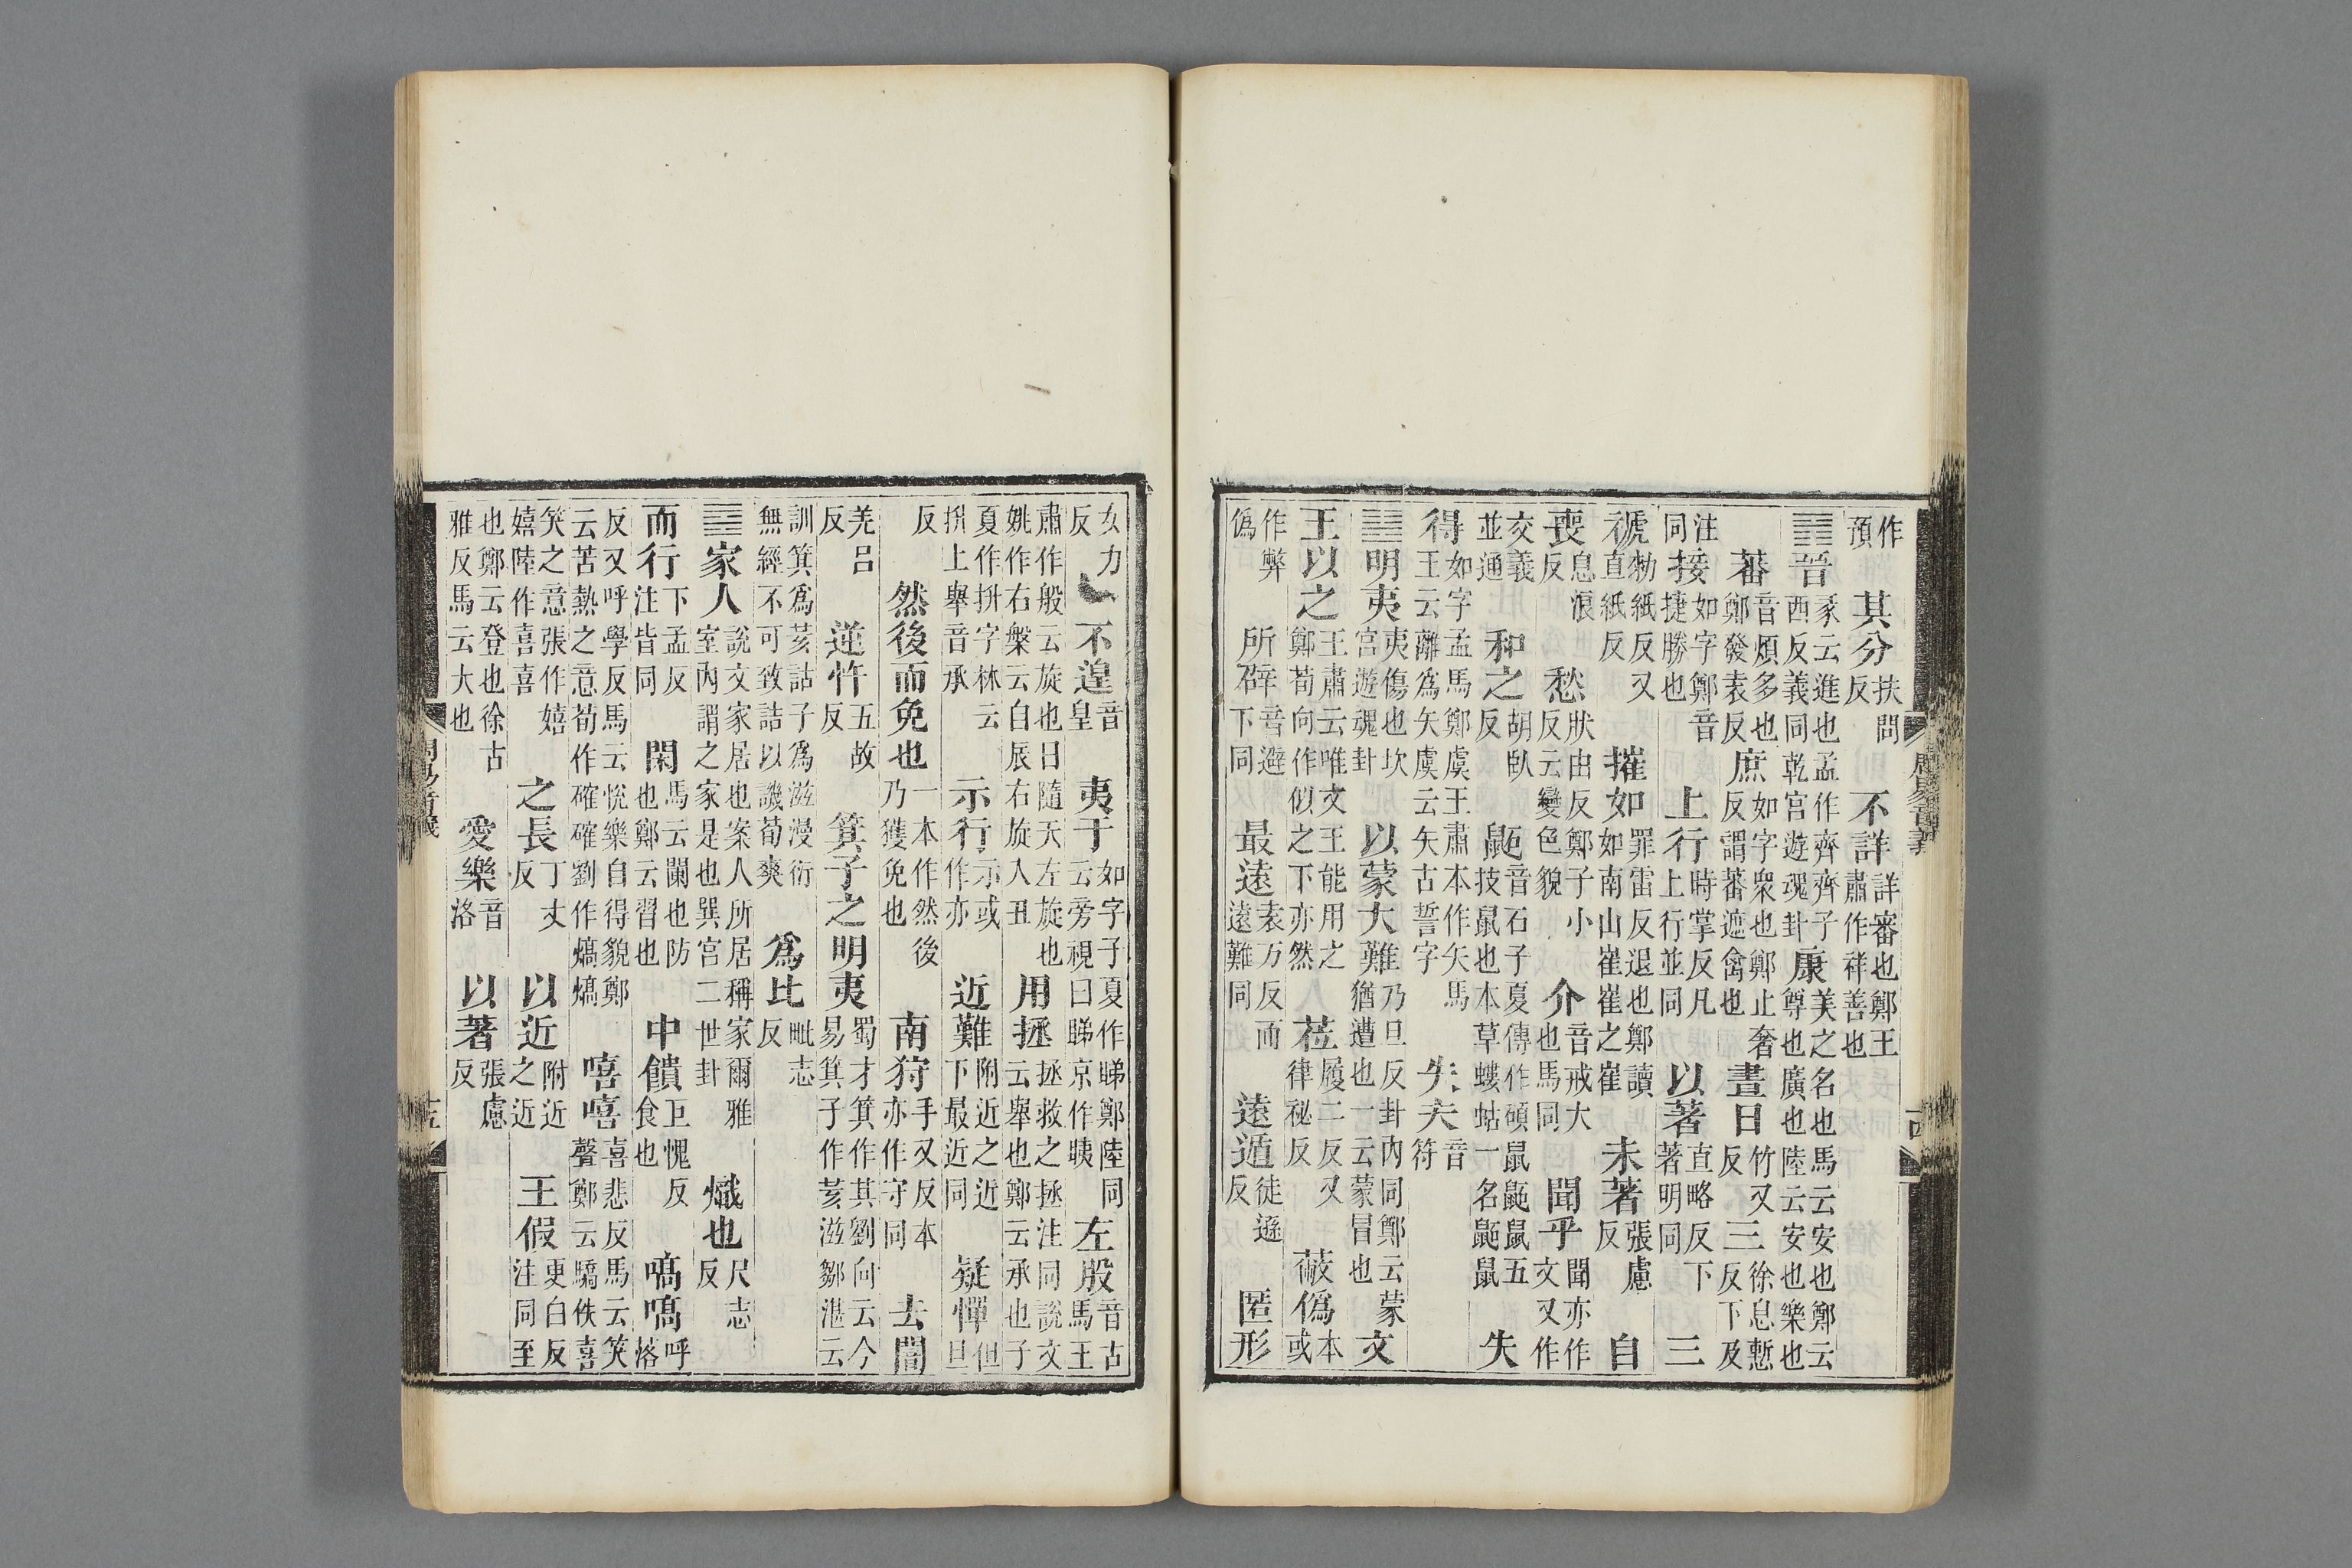 作預其分扶問反不詳詳審也鄭王肅作祥善也
䷢晉彖云進也孟作齊齊子西反義同乾宮遊魂卦康美之名也馬云安也鄭云尊也廣也陸云安也樂也
蕃音煩多也鄭發袁反庶如字衆也鄭止奢反謂蕃遮禽也晝日竹又反三徐息慙反下及
注同接如字鄭音捷勝也上行時掌反凡上行並同以著直略反下著明同三
褫勑紙反又直紙反摧如罪雷反退也鄭讀如南山崔崔之崔未著張慮反自
喪息浪反愁狀由反鄭子小反云變色貌介音戒大也馬同聞乎聞亦作文又作
交義並通和之胡臥反鼫音石子夏傳作碩鼠鼫鼠五技鼠也本草螻蛄一名鼫鼠失
得如字孟馬鄭虞王肅本作矢馬王云離爲矢虞云矢古誓字失夫音符
䷣明夷夷傷也坎宮遊魂卦以蒙大難乃旦反卦內同鄭云蒙猶遭也一云蒙冒也文
王以之王肅云唯文王能用之鄭荀向作似之下亦然莅履二反又律祕反蔽僞本或
作弊僞所辟音避下同最遠袁万反而遠難同遠遁徒遜反匿形
周易音義
十四
女力反不遑音皇夷于如字子夏作睇鄭陸同云旁視曰睇京作眱左股音古馬王
肅作般云旋也日隨天左旋也姚作右槃云自辰右旋入丑用拯拯救之拯注同說文云舉也鄭云承也子
夏作抍字林云抍上舉音承示行示或作亦近難附近之近下最近同疑憚但旦
反然後而免也一本作然後乃獲免也南狩手又反本亦作守同去闇
羌呂反逆忤五故反箕子之明夷蜀才箕作其劉向云今易箕子作荄滋鄒湛云
訓箕爲荄詁子爲滋漫衍無經不可致詰以譏荀爽爲比毗志反
䷤家人說文家居也案人所居稱家爾雅室內謂之家是也巽宮二世卦熾也尺志反
而行下孟反注皆同閑馬云闌也防也鄭云習也中饋巨愧反食也嗃嗃呼落
反又呼學反馬云悅樂自得貌鄭云苦熱之意荀作確確劉作熇熇嘻嘻喜悲反馬云笑聲鄭云驕佚喜
笑之意張作嬉嬉陸作喜喜之長丁丈反以近附近之近王假更白反注同至
也鄭云登也徐古雅反馬云大也愛樂音洛以著張慮反
周易音義
十五